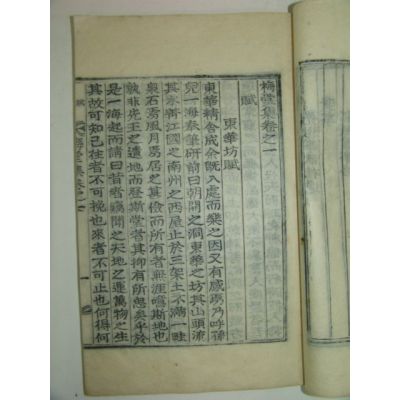 梅堂集卷之一
賦
東華坊賦
東華精舍成余旣入處而樂之因又有感焉乃呼孫
兒一海奉筆硏前曰朝開之洞東華之坊其山頭流
其水新江國之南州之西屋止於三架土不滿一畦
泉石濤風月葛居之其儉而所有者無涯噫斯地也
孰非先王之遺地而登斯堂者其抑有所思矣乎於
是一海起而請曰昔者竊聞之天地之運萬物之生
其故可知已往者不可挽也來者不可止也何得何